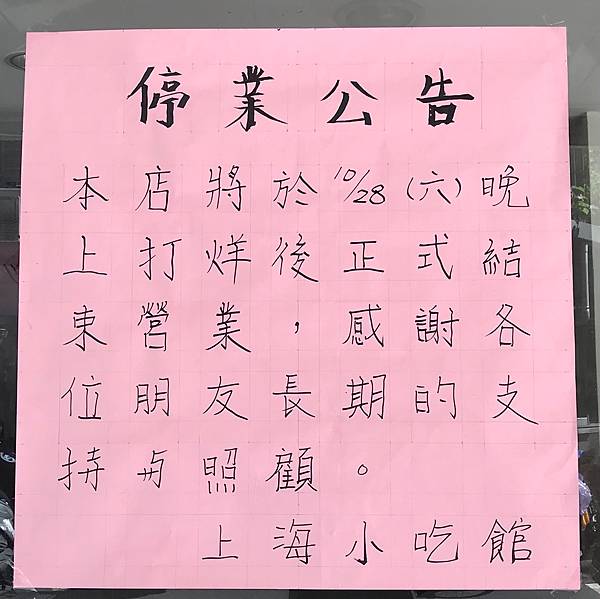 停業公告
本店將於10/28(六)晚
上打烊後正式結
東營業，感謝各
位朋友長期的支
持与照顧。
上海小吃館